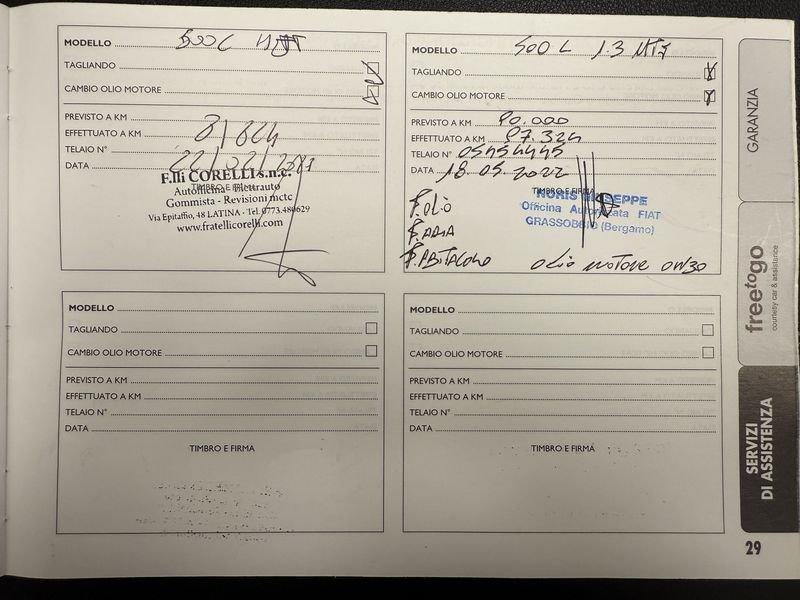 MODELLO 500L MJT
TAGLIANDO
CAMBIO OLIO MOTORE
PREVISTO A KM
EFFETTUATO A KM
TELAIO N°
DATA 22/02/2021
TIMBRO E FIRMA
F.lli CORELLI s.n.c.
Autofficina - Elettrauto
Gommista - Revisioni mctc
Via Epitaffio, 48 LATINA - Tel. 0773.480629
www.fratellicorelli.com
MODELLO 500 L 1.3 MTJ
TAGLIANDO
CAMBIO OLIO MOTORE
PREVISTO A KM 90.000
EFFETTUATO A KM 97.324
TELAIO N°
DATA 18.05.2022
TIMBRO E FIRMA
NORIS GIUSEPPE
Officina Autorizzata FIAT
GRASSOBBIO (Bergamo)
F.OLIO
F.ARIA
F.ABITACOLO OLIO MOTORE 0W30
MODELLO
TAGLIANDO
CAMBIO OLIO MOTORE
PREVISTO A KM
EFFETTUATO A KM
TELAIO N°
DATA
TIMBRO E FIRMA
MODELLO
TAGLIANDO
CAMBIO OLIO MOTORE
PREVISTO A KM
EFFETTUATO A KM
TELAIO N°
DATA
TIMBRO E FIRMA
GARANZIA
freetogo
courtesy car & assistance
SERVIZI
DI ASSISTENZA
29